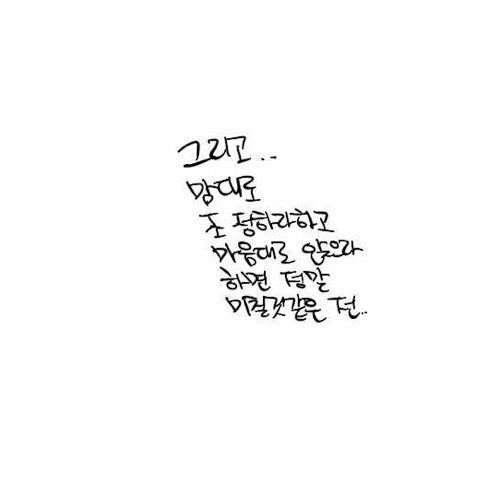 그리고..
맘대로
조정하라하고
마음대로 앉으라
하면 정말
미칠것같은 전..